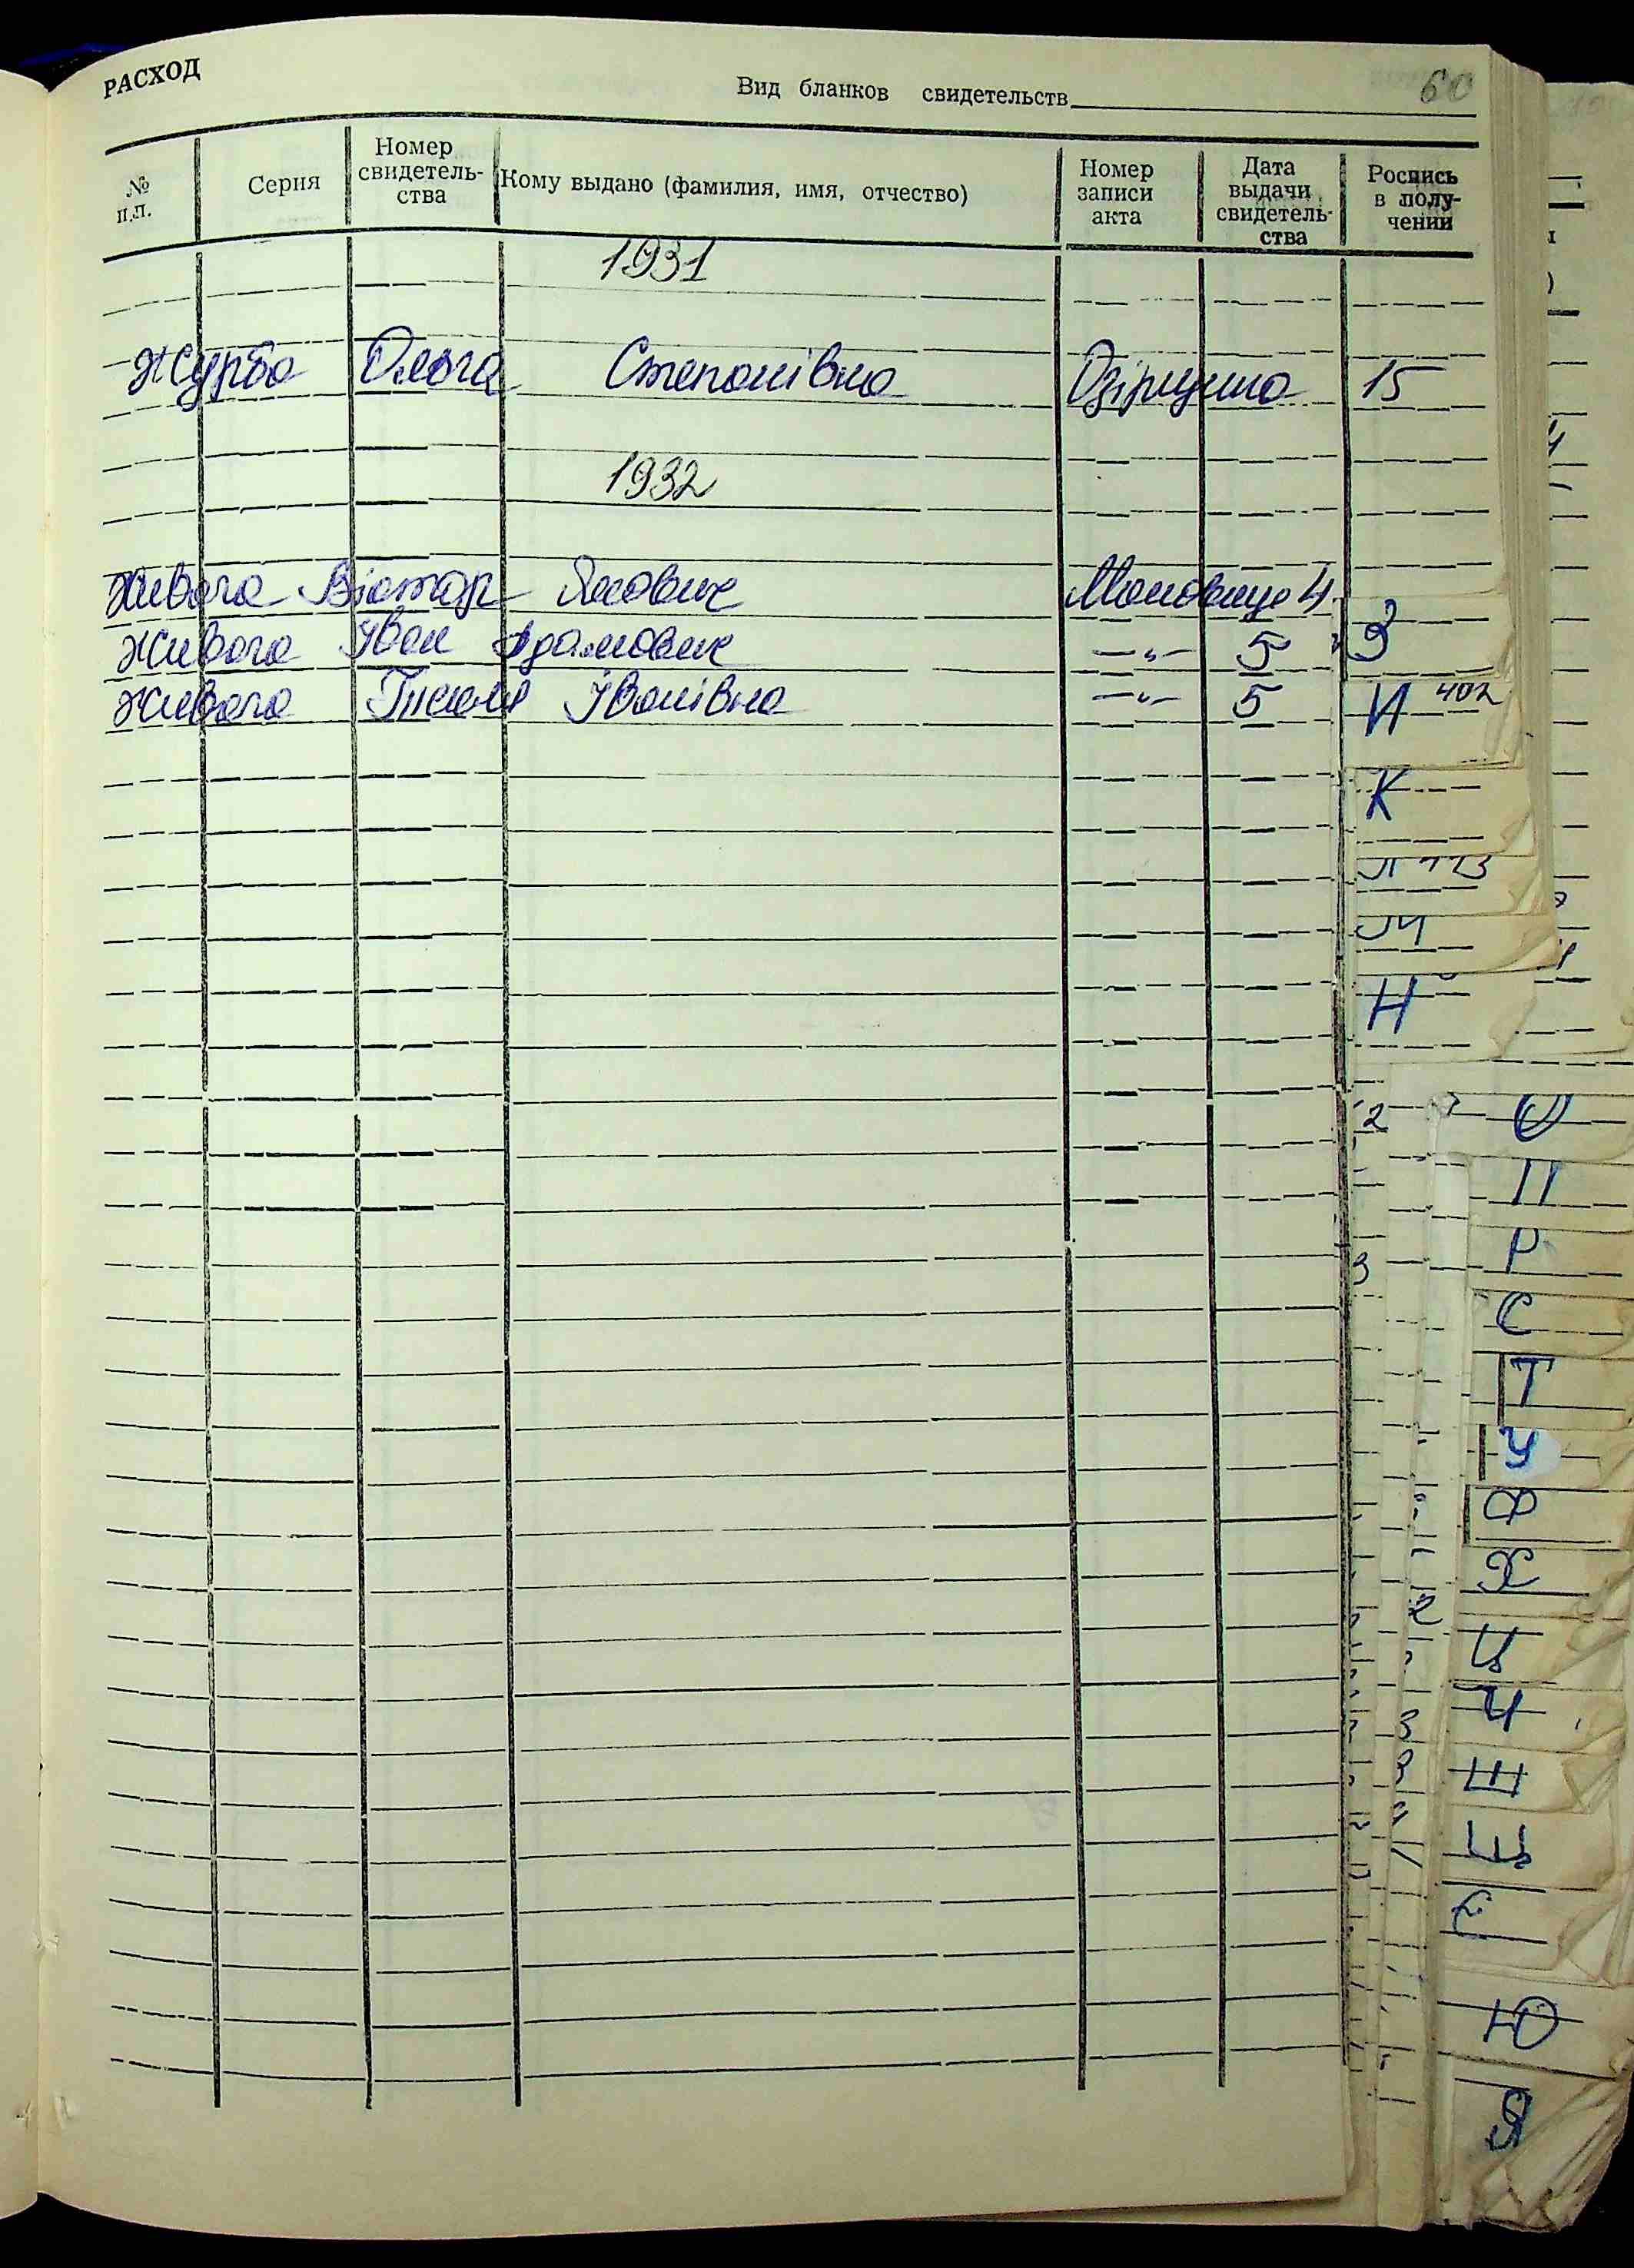 РАСХОД
Вид бланков свидетельств
60
№ п.п.
Серия
Номер свидетель-ства
Кому выдано (фамилия, имя, отчество)
Номер записи акта
Дата выдачи свидетель-ства
Роспись в полу-чении
1931
Журба Ольга Степанівна Озірщина 15
1932
Живага Віктор Янович 4
Живага Іван Адамович —"— 5
Живага Івонівна —"— 5
З
И 402
К
Л 113
М
Н
О
П
Р
С
Т
У
Ф
Х
Ц
Ч
Ш
Щ
Є
Ю
Я